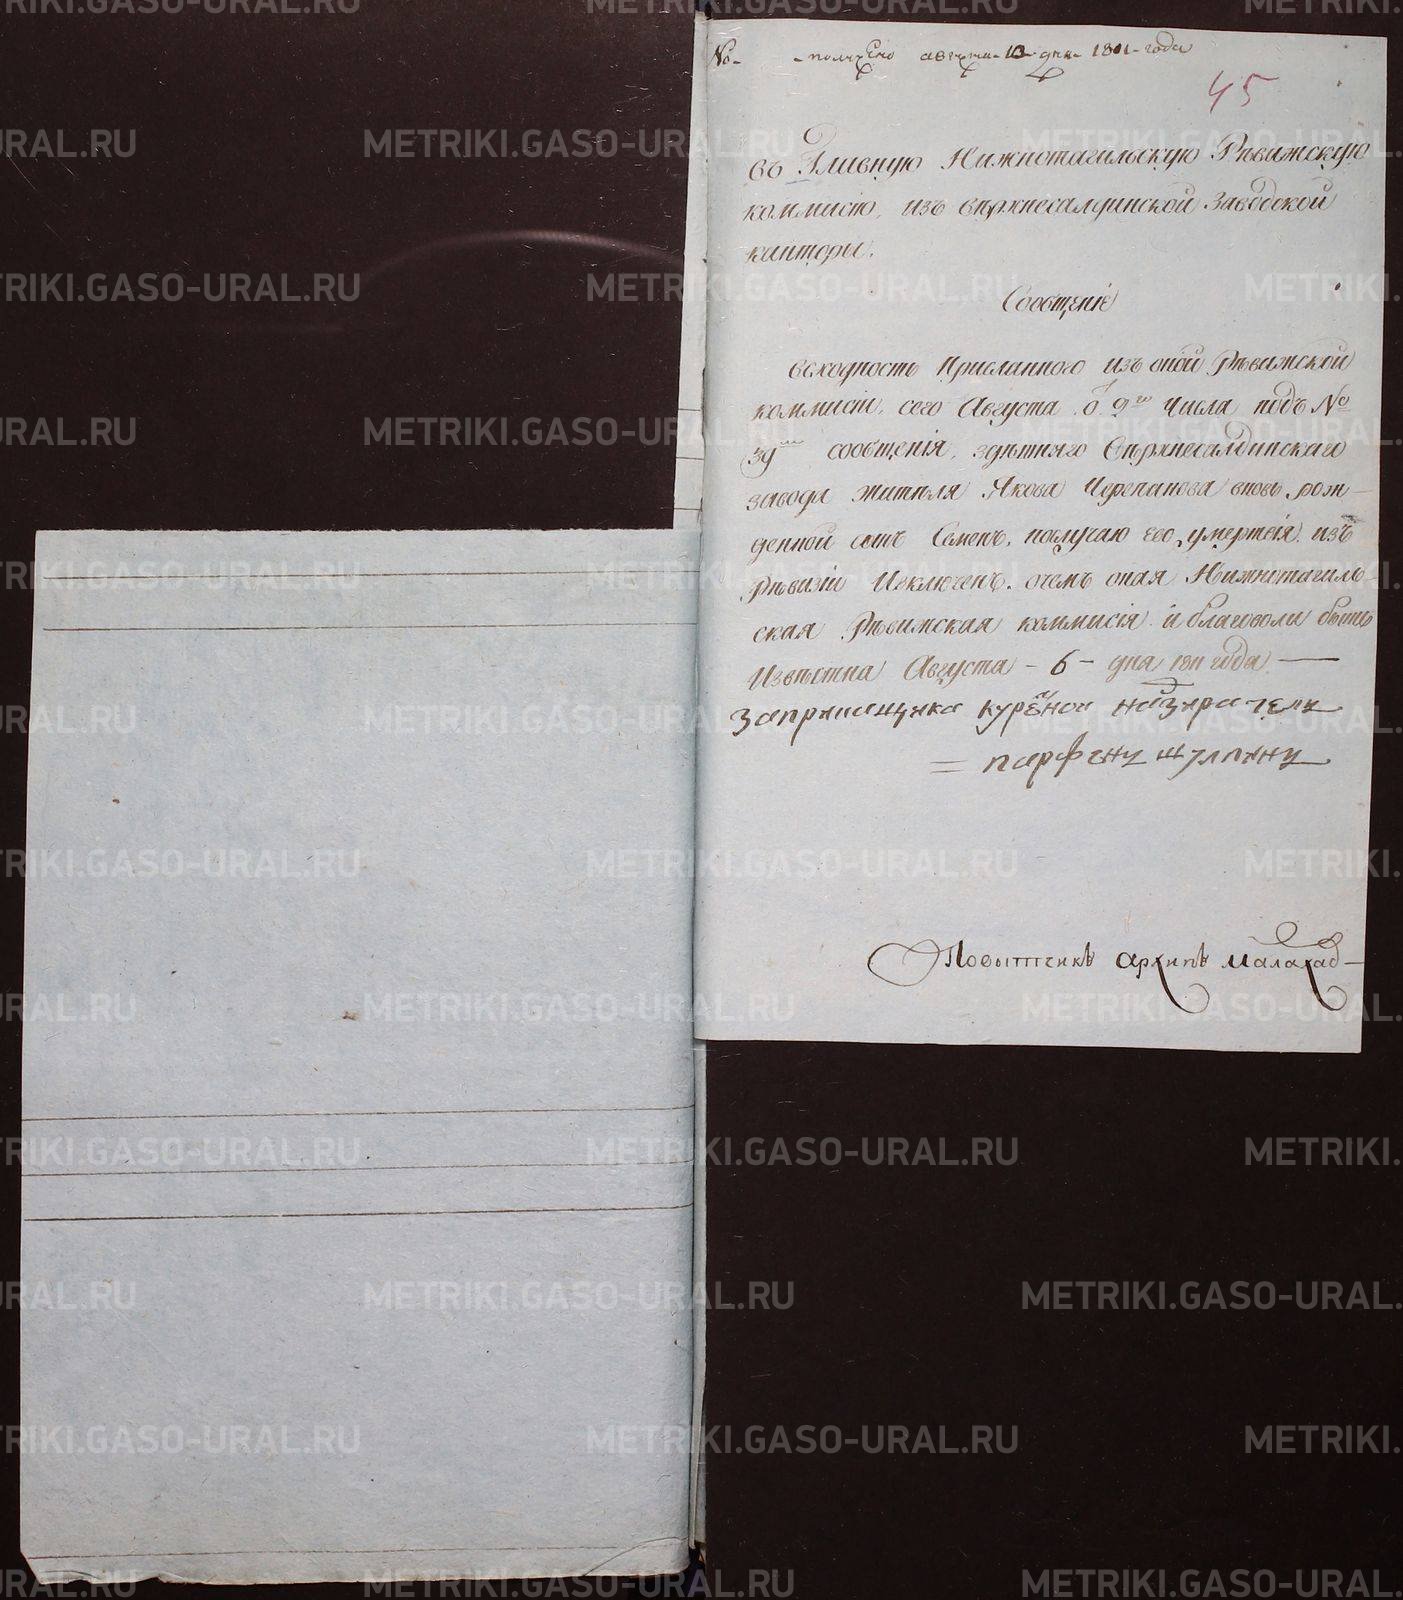 № - получено августа 13 дня 1811 года
45
въ Главную Нижнотагильскую Ревижскую
коммисію, изъ верхнесалдинской Заводской
канторы.
Сообщеніе
всходность Присланного изъ оной Ревижской
коммисіи, сего Августа о 9го числа подъ №
39мъ сообщенія, здешняго Верхнесалдинскаго
завода жителя Якова Черепанова вновь рож-
денной сынъ Семенъ, послучаю его умертвія изъ
Ревизіи Исключенъ. очемъ оная Нижнотагиль-
ская Ревижская коммисія и благоволи быть
Известна Августа - 6 - дня 1811 года
Заприкащика куренои надзиратель
парфенъ
Повытчикъ архипъ малахов
METRIKI.GASO-URAL.RU